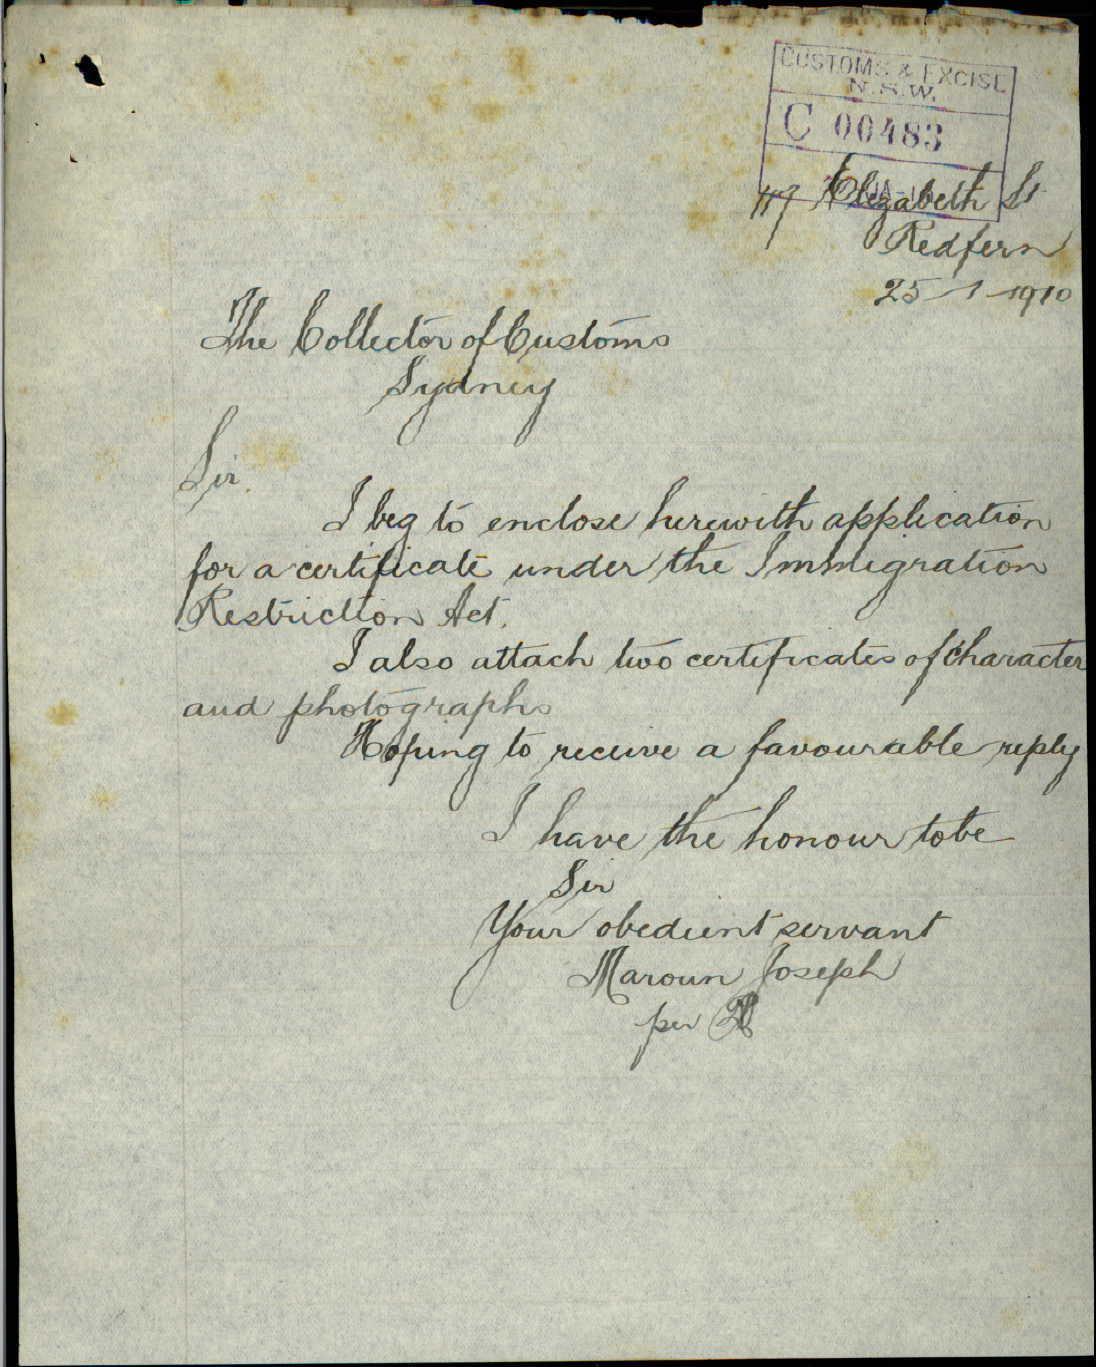 CUSTOMS & EXCISE
N.S.W.
C 00483
117 Elizabeth St
Redfern
25-1-1910
The Collector of Customs
Sydney
Sir.
I beg to enclose herewith application
for a certificate under the Immigration
Restriction Act.
I also attach two certificates of Character
and photographs
Hoping to receive a favourable reply
I have the honour to be
Sir
Your obedient servant
Maroun Joseph
per